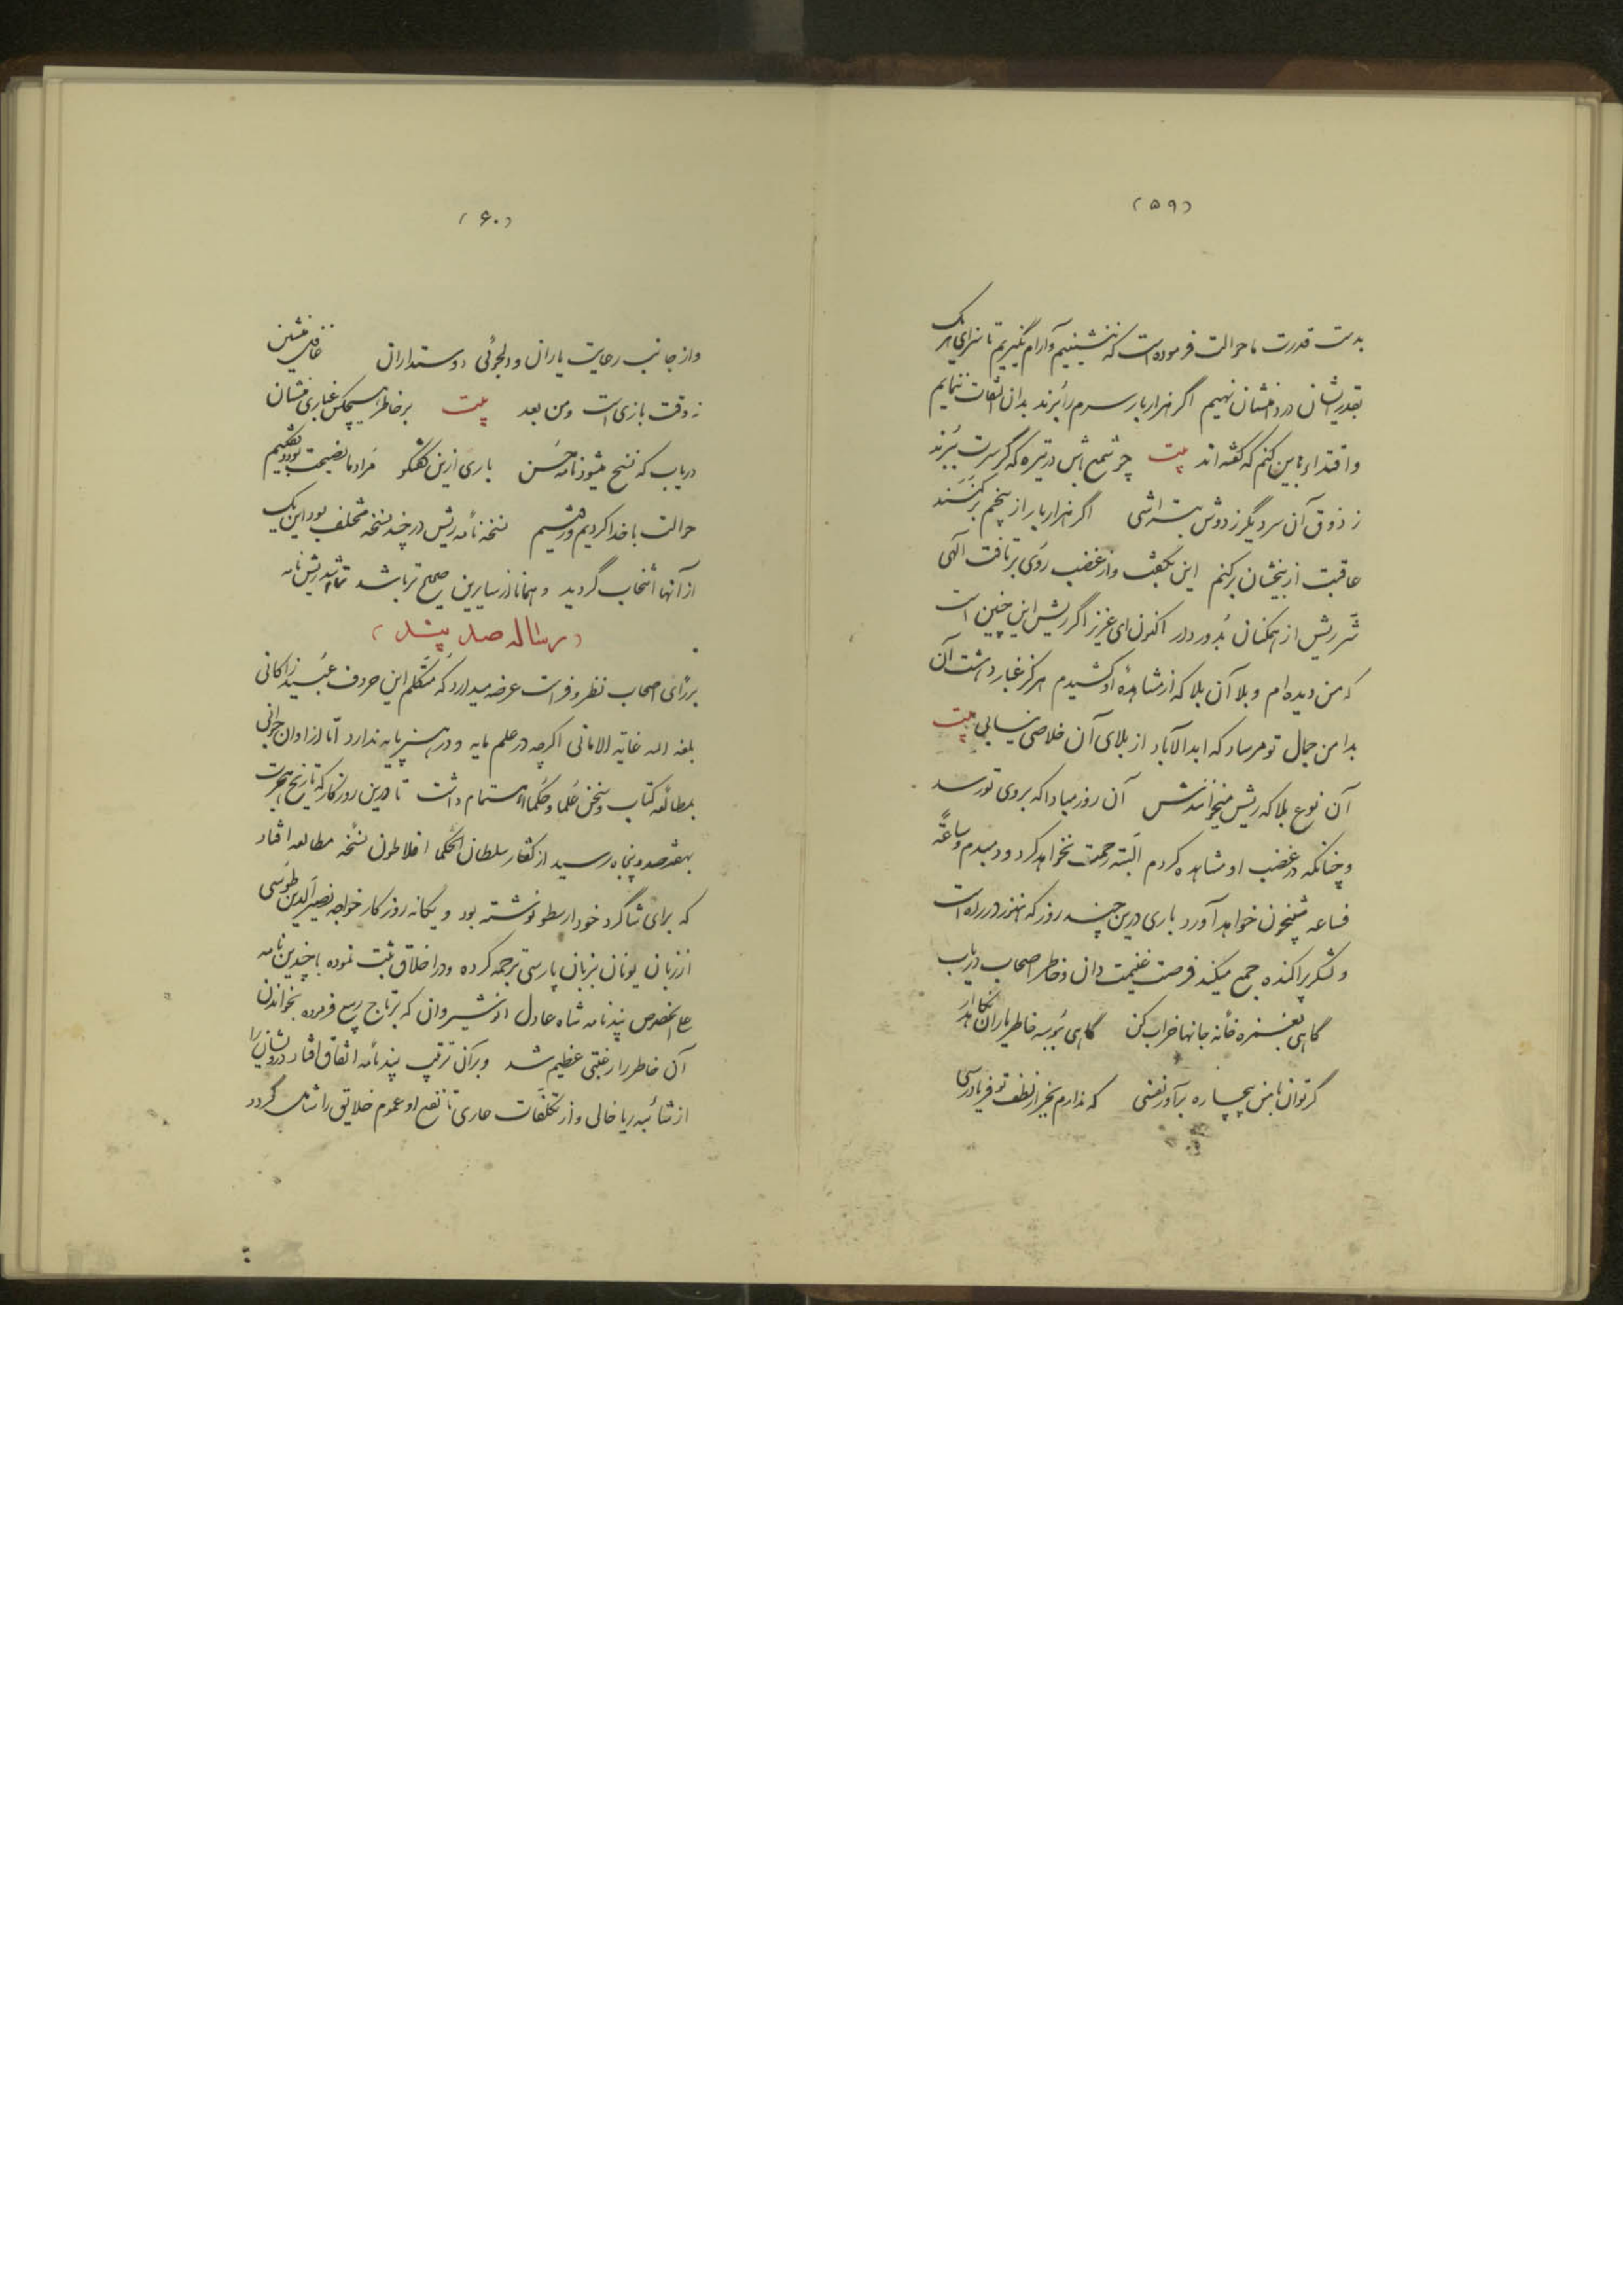 (۵۹)
بدست قدرت ما حوالت فرموده است که ننشینیم و آرام نگیریم تا سزای هریک
بقدر ایشان در دامنشان نهیم اگر هزار بار سرم را ببرند بدان التفات ننمایم
و اقتداء باین کنم که گفته اند بیت چو شمع باش درتیره که گر سرت ببرند
ز ذوق آن سر دیگر ز دوش بتراشی اگر هزار بار از بیخم برکنند
عاقبت از بیخشان برکنم این بگفت و از غضب روی برتافت الهی
شر ریش از همگنان بدور دار اکنون ای عزیز اگر ریش این چنین است
که من دیده ام و بلا آن بلا که از مشاهدهٔ او کشیدم هرگز غبار دهشت آن
بدامن جمال تو مرساد که ابد الآباد از بلای آن خلاصی نیابی بیت
آن نوع بلا که ریش میخوانندش آن روز مبادا که بروی تو رسد
و چنانکه در غضب او مشاهده کردم البته رحمت نخواهد کرد و دمبدم و ساعةً
فساعه شبیخون خواهد آورد باری درین چند روز که هنوز در راه است
و لشکر پراکنده جمع میکند فرصت غنیمت دان و خاطر اصحاب دریاب
گاهی بغمزه خانه جانها خراب کن گاهی ببوسه خاطر یاران نگاهدار
گر توان با من بیچاره برآور نفسی که ندارم بخیر از لطف تو فریادرسی
(۶۰)
و از جانب رعایت یاران و دلجوئی دوستداران غافل منشین
نه وقت بازی است ومن بعد بیت بر خاطر هیچکس غباری منشان
دریاب که نسخ میشود نامهٔ حسن باری ازین گفتگو مراد ما نصیحت بود و گفتیم
حوالت با خدا کردیم و رفتیم نسخه نامه ریش در چند نسخه مختلف بود این یک
از آنها انتخاب گردید و همانا از سایرین صحیح تر باشد تمام شد ریش نامه
(رساله صد پند)
بر رای اصحاب نظر و فراست عرضه میدارد که متکلم این حروف عبید زاکانی
بلغه الله غایة الامانی اگرچه در علم مایه و در هنر پایه ندارد اما از اوان جوانی
بمطالعه کتاب و سخن علما و حکما اهتمام داشت تا درین روزگار که تاریخ هجرت
بهفتصد و پنجاه رسید از گفتار سلطان الحکما افلاطون نسخه مطالعه افتاد
که برای شاگرد خود ارسطو نوشته بود و یگانه روزگار خواجه نصیرالدین طوسی
از زبان یونان بزبان پارسی ترجمه کرده و در اخلاق ثبت نموده با چندین نامه
علی الخصوص پندنامه شاه عادل انوشیروان که بر تاج ربع فرموده بخواندن
آن خاطر را رغبتی عظیم شد و بر آن ترتیب پندنامه اتفاق افتاد درویشان را
از شائبه ریا خالی و از تکلفات عاری تا نفع او عموم خلایق را شامل گردد